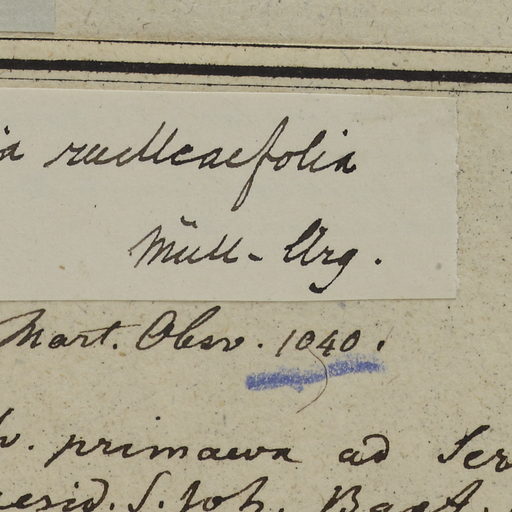 ia ruellcaefolia
Müll-Arg.
Mart. Obsv. 1040.
v. primaeva ad Ser
aesid. S. Joh. Bapt.